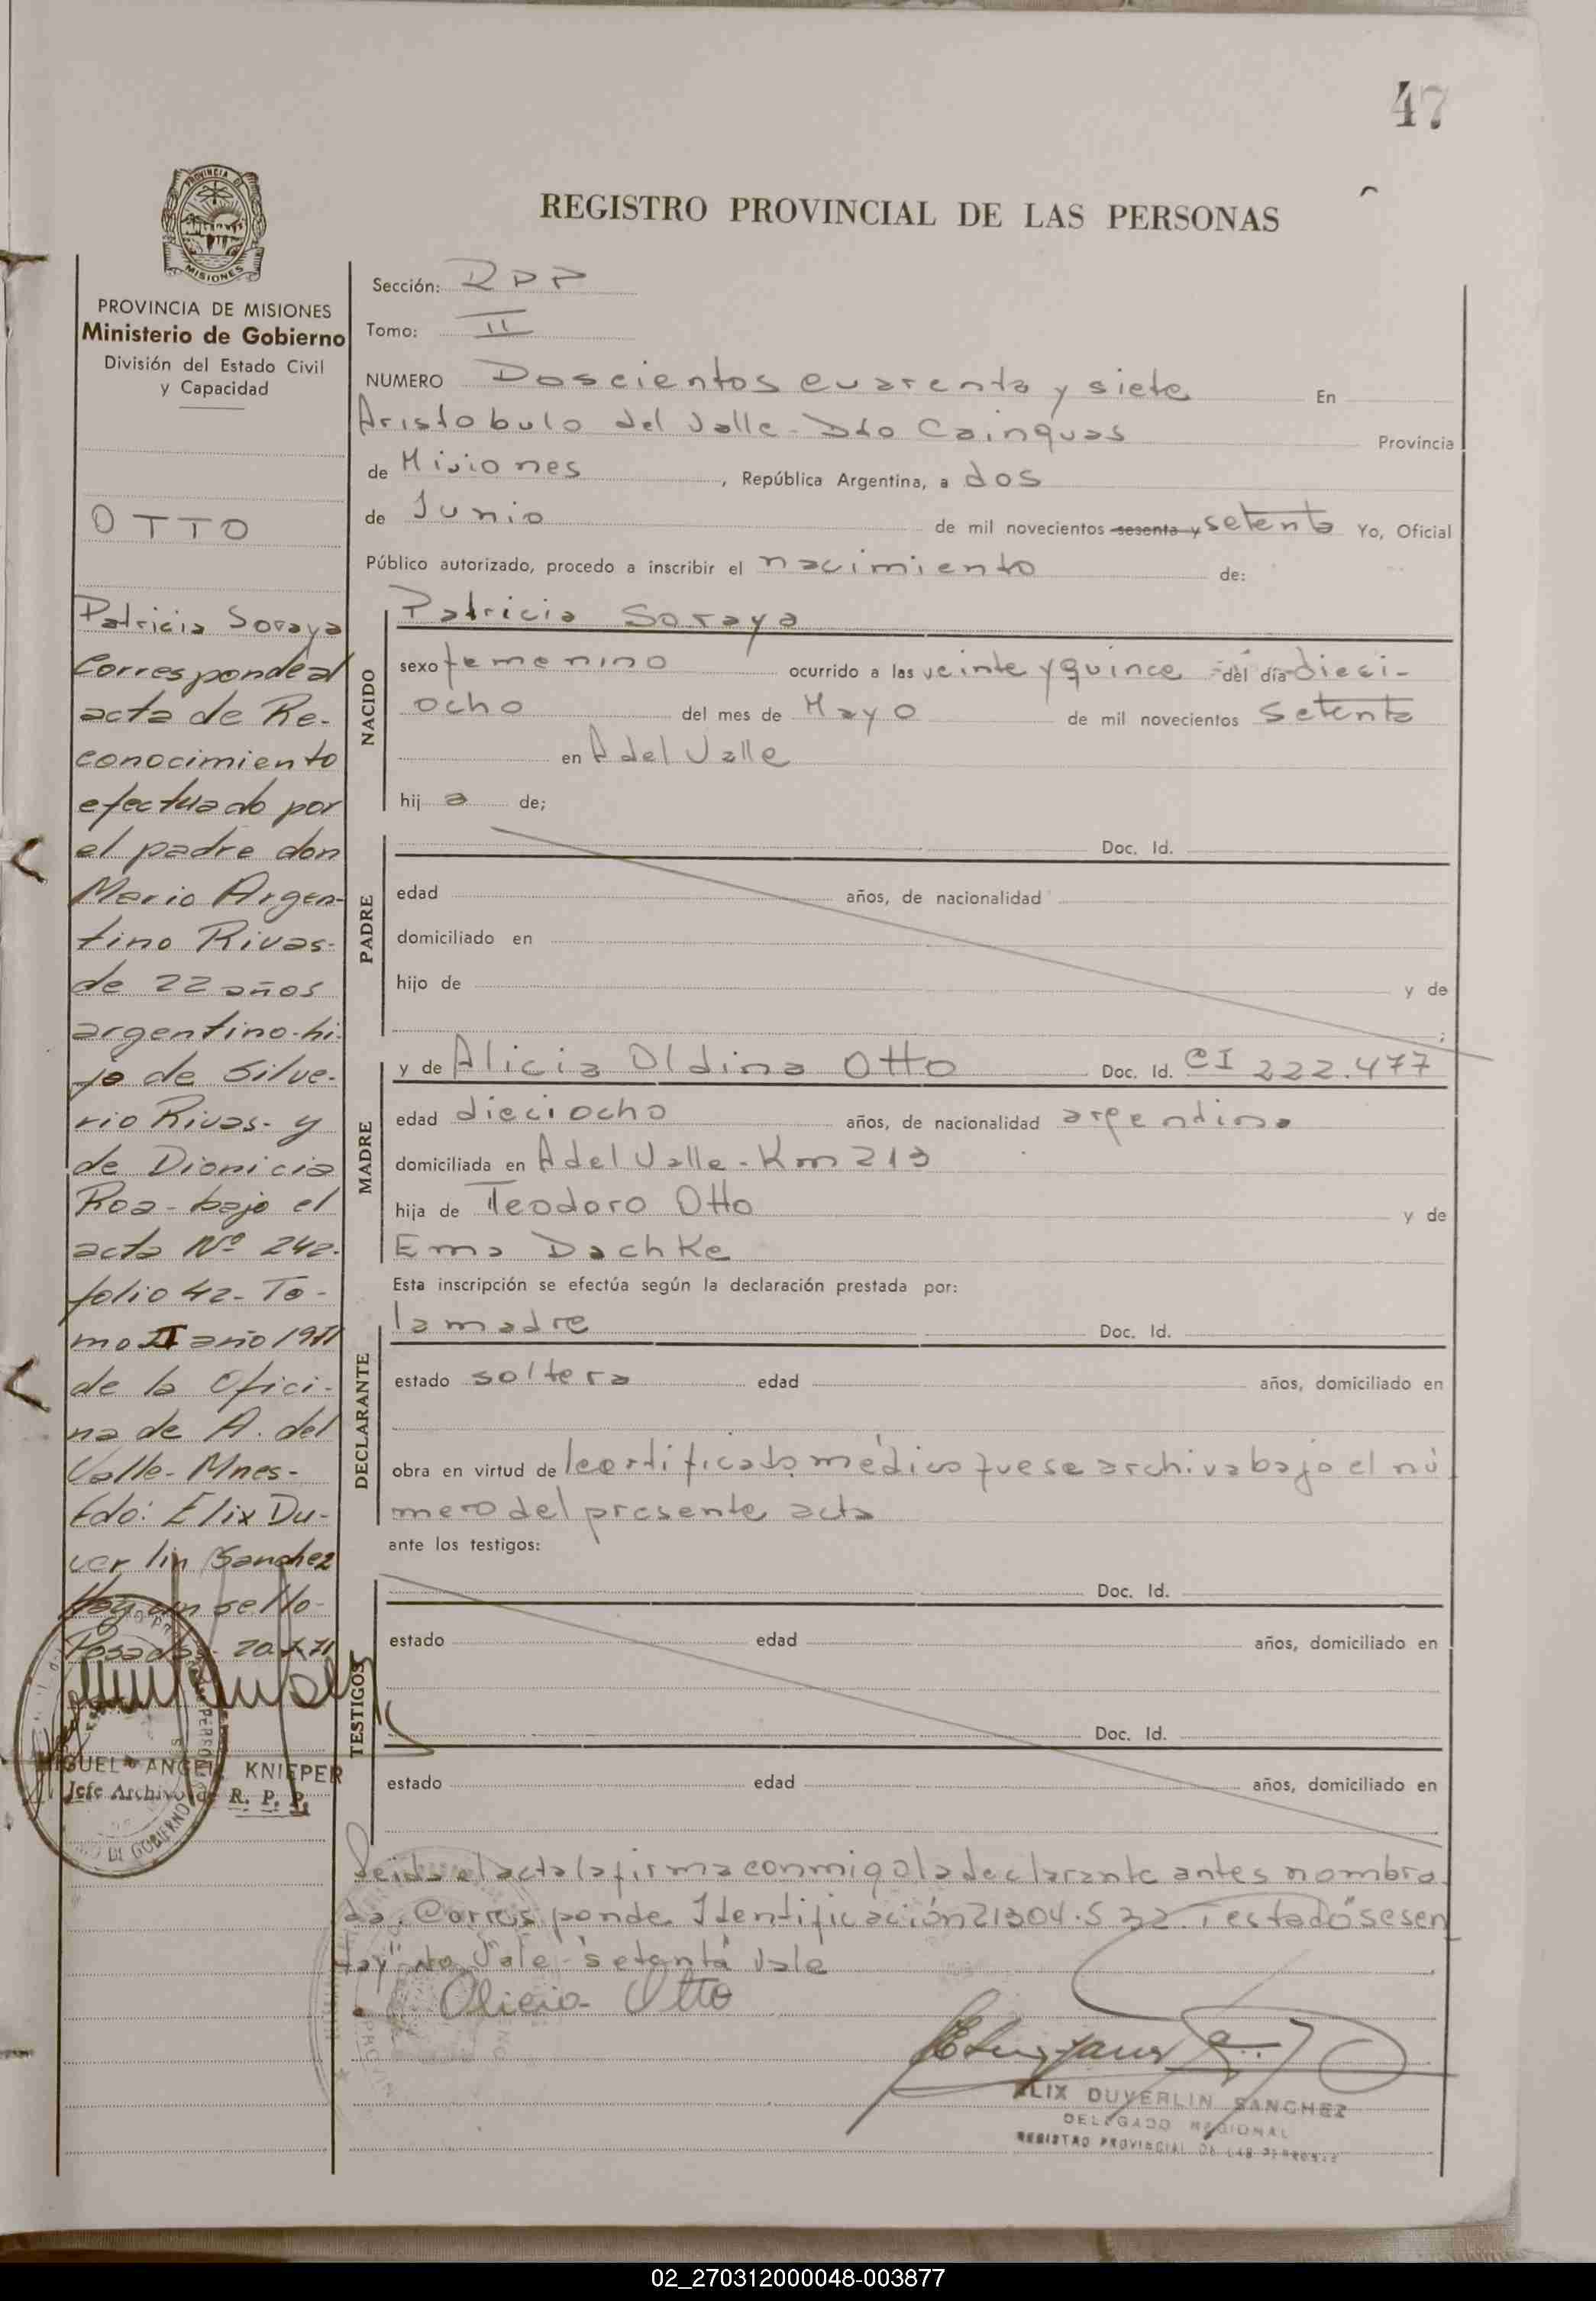 47
REGISTRO PROVINCIAL DE LAS PERSONAS
PROVINCIA DE
MISIONES
PROVINCIA DE MISIONES
Ministerio de Gobierno
División del Estado Civil
y Capacidad
OTTO
Patricia Soraya
Corresponde al
acta de Re-
conocimiento
efectuado por
el padre don
Mario Argen-
tino Rivas-
de 22 años
argentino-hi-
jo de Silve-
rio Rivas- y
de Dionicia
Roa- bajo el
acta Nº 242-
folio 42- To-
mo II año 1971
de la Ofici-
na de A. del
Valle- Mnes-
Fdo: Elix Du-
ver lin Sanchez
Hay un sello-
Posadas 20.X.71
MIGUEL ANGEL KNIEPER
Jefe Archivo de R. P. P.
Sección: RPP
Tomo: II
NUMERO Doscientos cuarenta y siete En
Aristobulo del Valle- Dto Cainguas Provincia
de Misiones, República Argentina, a dos
de Junio de mil novecientos sesenta y setenta Yo, Oficial
Público autorizado, procedo a inscribir el nacimiento de:
NACIDO
Patricia Soraya
sexo femenino ocurrido a las veinte y quince del día dieci-
ocho del mes de Mayo de mil novecientos setenta
en A del Valle
hij a de;
PADRE
Doc. Id.
edad años, de nacionalidad
domiciliado en
hijo de y de
;
MADRE
y de Alicia Oldina Otto Doc. Id. CI 222.477
edad dieciocho años, de nacionalidad argentina
domiciliada en A del Valle- Km 213
hija de Teodoro Otto y de
Ema Dachke
Esta inscripción se efectúa según la declaración prestada por:
DECLARANTE
la madre Doc. Id.
estado soltera edad años, domiciliado en
obra en virtud de certificado médico que se archiva bajo el nú
mero del presente acta
ante los testigos:
TESTIGOS
Doc. Id.
estado edad años, domiciliado en
Doc. Id.
estado edad años, domiciliado en
Leida el acta la firma conmigo la declarante antes nombra-
da. Corresponde Identificación 21304.S 32. Testado "sesen
ta y" No Vale- "setenta" Vale
Alicia Otto
ELIX DUVERLIN SANCHEZ
DELEGADO REGIONAL
REGISTRO PROVINCIAL DE LAS PERSONAS
02_270312000048-003877